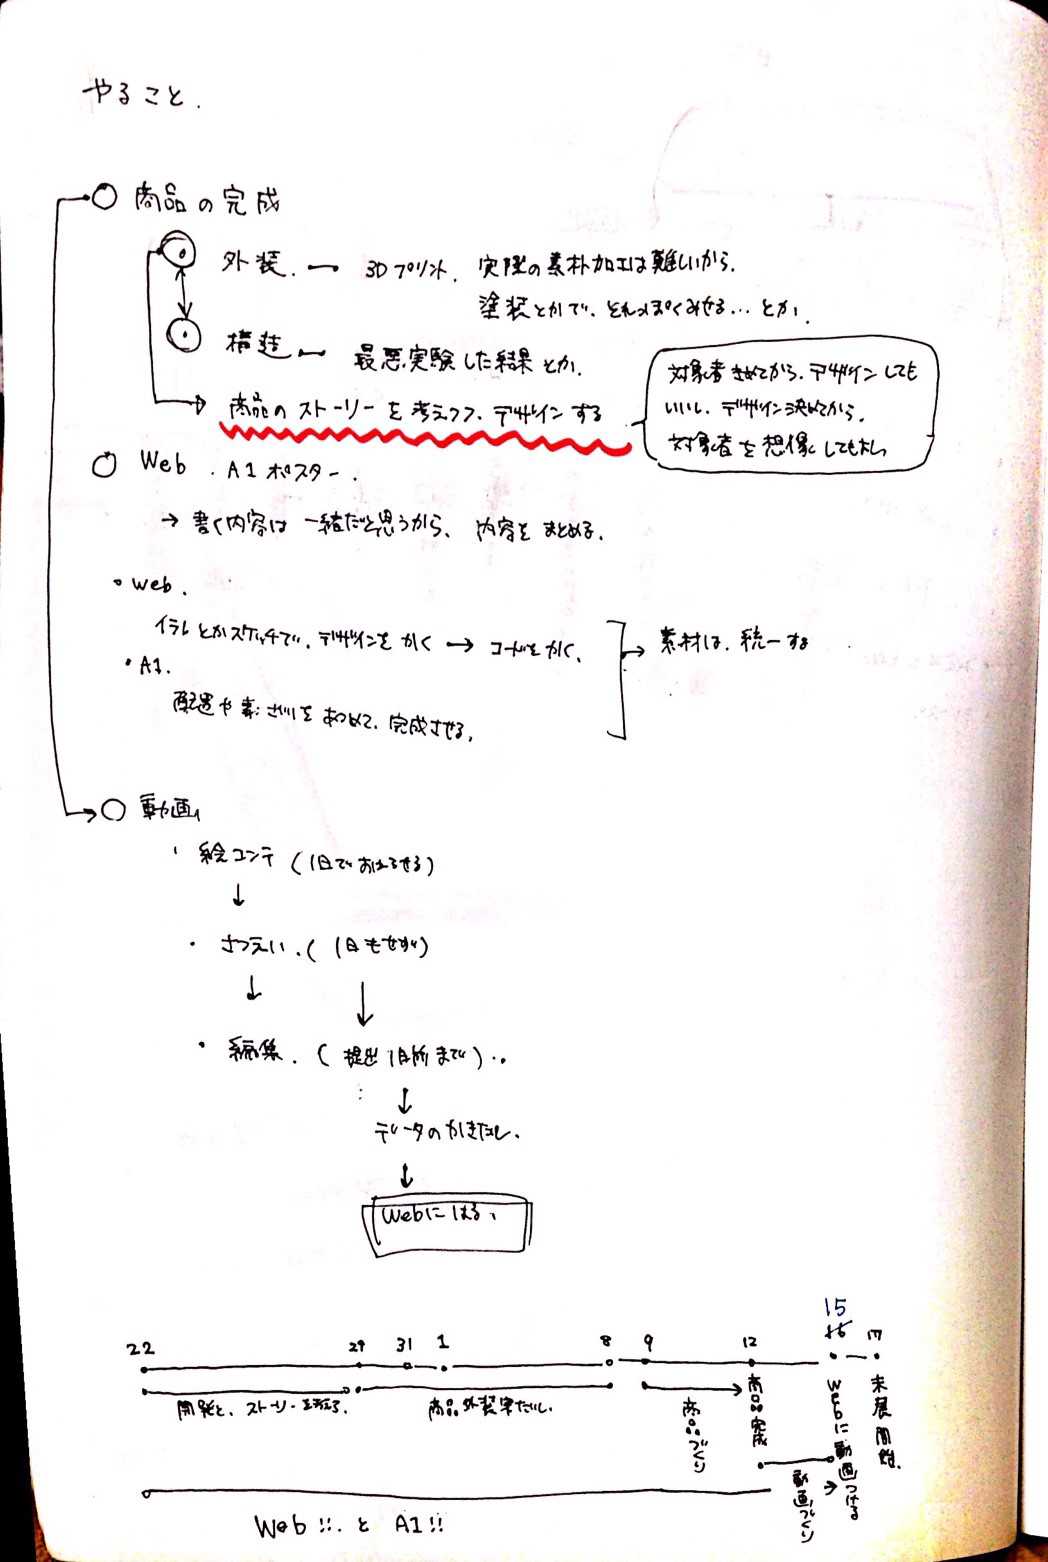 やること.
商品の完成
外装. ー 3Dプリント. 実際の素材加工は難しいから.
塗装とかで、それっぽくみせる... とか.
構造 ー 最悪実験した結果とか.
商品のストーリーを考えつつ、デザインする
対象者きめてから、デザインしても
いいし、デザイン決めてから.
対象者を想像してもよし
Web . A1ポスター.
→ 書く内容は一緒だと思うから、内容をまとめる.
・web.
イラレとかスケッチで、デザインをかく → コードをかく、
→ 素材は、統一する
・A1.
配置や素ざいをあつめて、完成させる.
動画
・絵コンテ (1日でおわらせる)
↓
・さつえい. (1日もせず)
↓ ↓
・編集. (提出1日前まで) ..
↓
データのかきだし.
↓
Webにはる、
15
22 29 31 1 8 9 12 16 17
開発と、ストーリーを考える.
商品外装案だし.
商品づくり
商品完成
動画づくり
Webに動画つける
未展開始.
Web !!. と A1!!